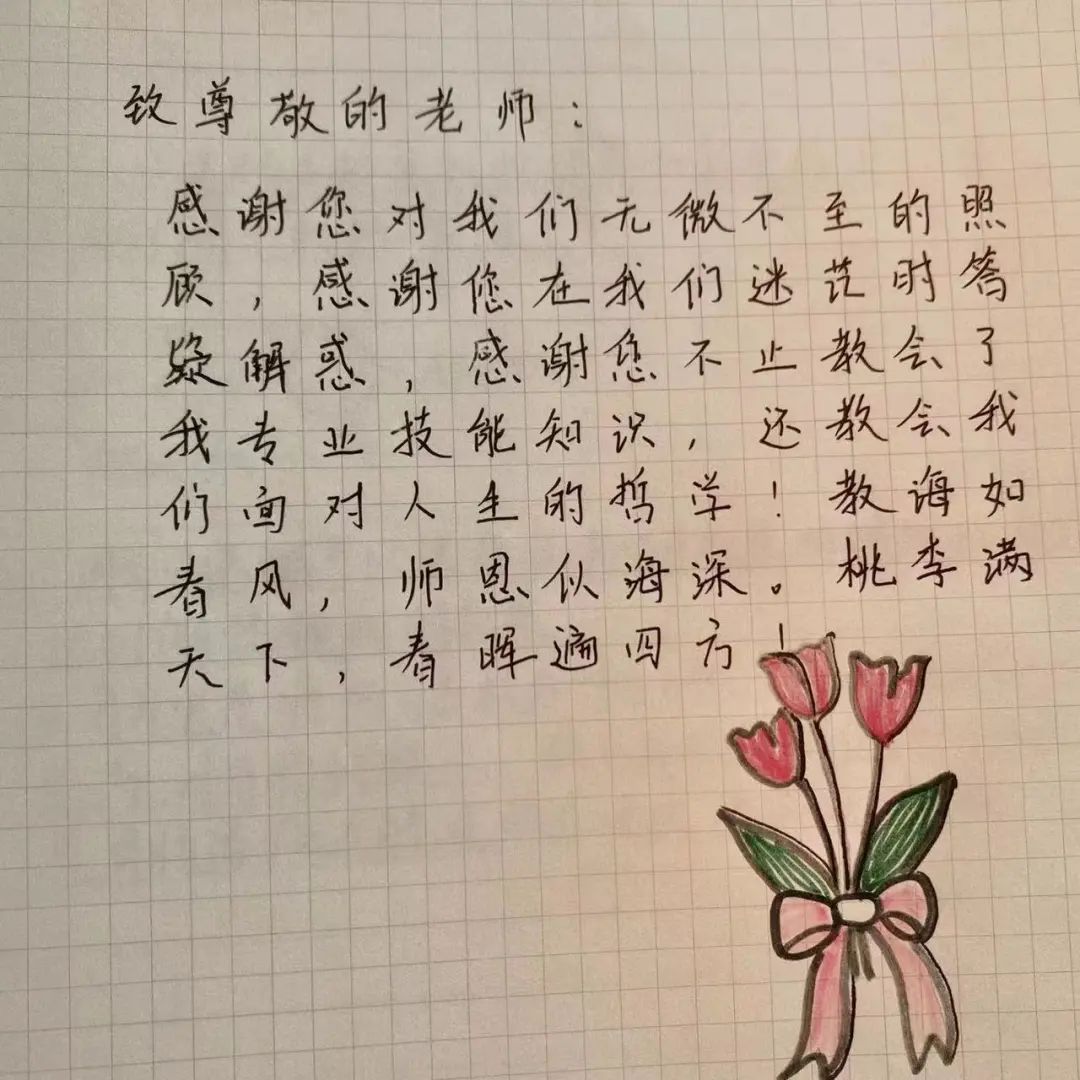 致尊敬的老师：
感谢您对我们无微不至的照
顾，感谢您在我们迷茫时答
疑解惑，感谢您不止教会了
我专业技能知识，还教会我
们面对人生的哲学！教诲如
春风，师恩似海深。桃李满
天下，春晖遍四方！